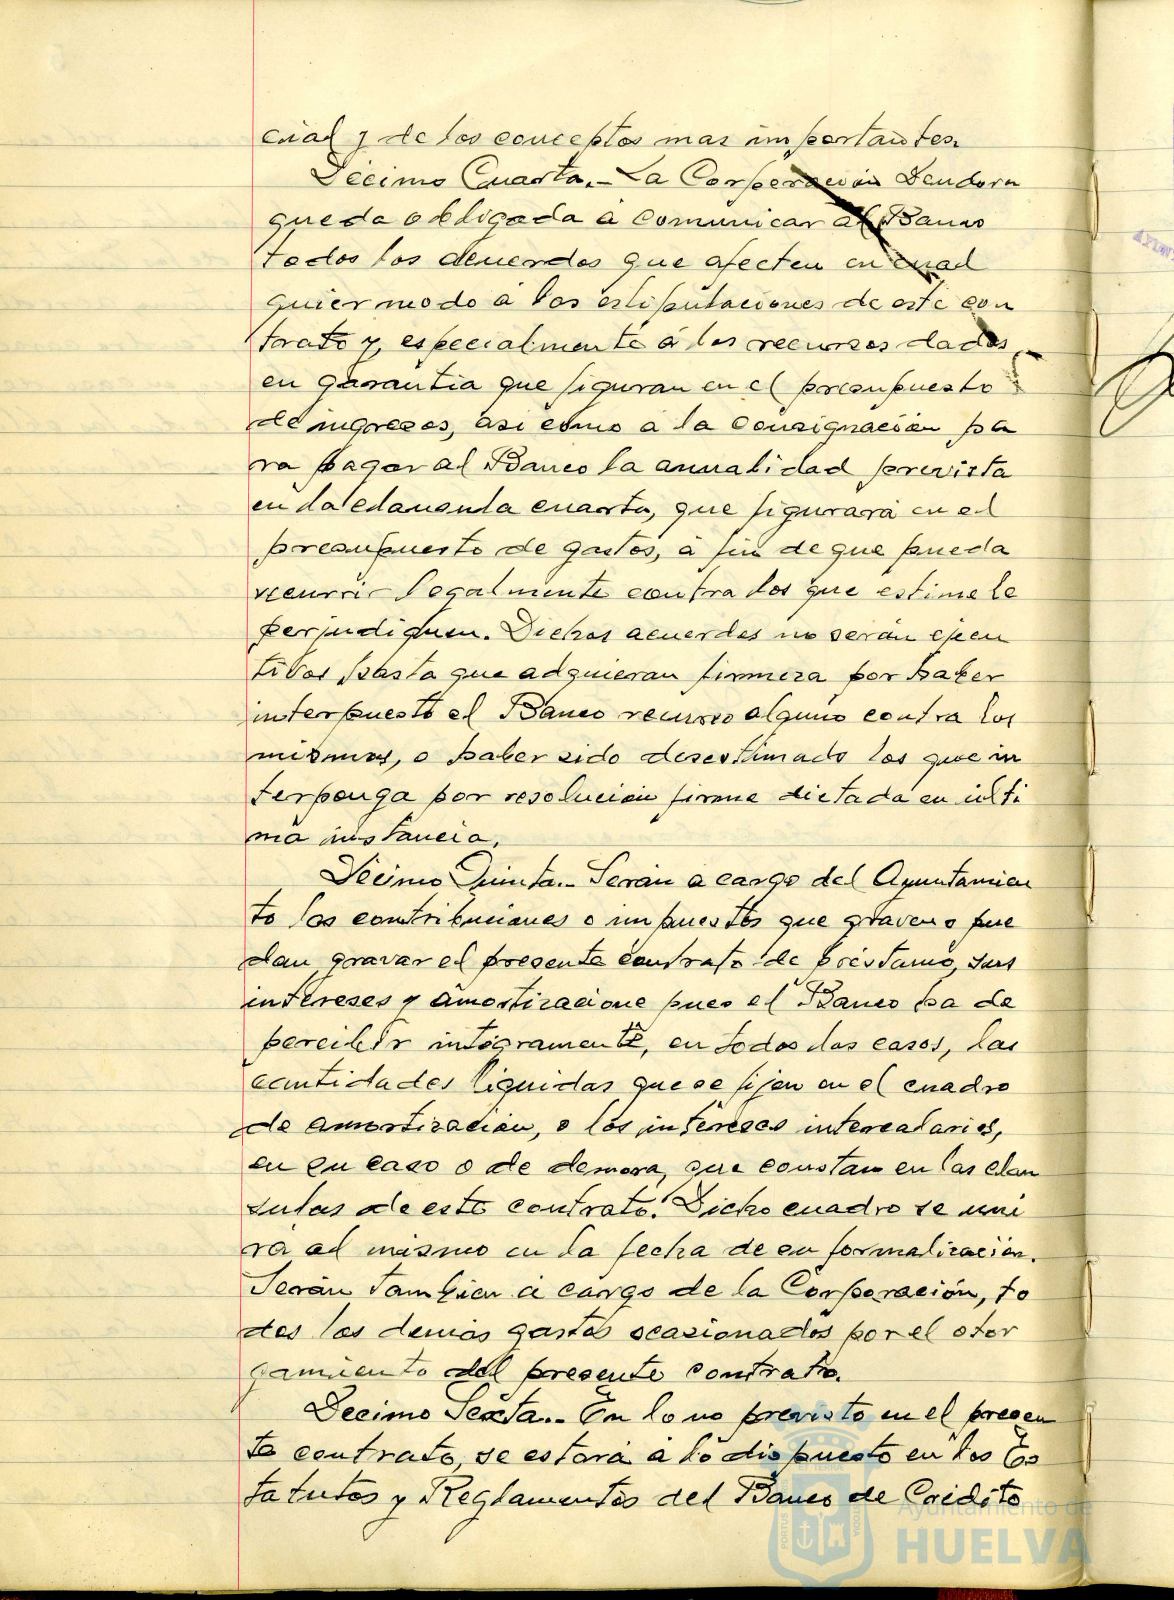 cial y de los conceptos mas importantes.
Décimo Cuarta.- La Corporación Deudora
queda obligada a comunicar al Banco
todos los acuerdos que afecten en cual
quier modo á las estipulaciones de este con
trato y, especialmente á los recursos dados
en garantia que figuran en el presupuesto
de ingresos, asi como a la consignación pa
ra pagar al Banco la anualidad prevista
en la clausula cuarta, que figurará en el
presupuesto de gastos, á fin de que pueda
recurrir legalmente contra los que estime le
perjudiquen. Dichos acuerdos no serán ejecu
tivos hasta que adquieran firmeza por haber
interpuesto el Banco recurso alguno contra los
mismos, o haber sido desestimado los que in
terponga por resolución firme dictada en ulti
ma instancia.
Décimo Quinta.- Serán a cargo del Ayuntamien
to las contribuciones o impuestos que graven o pue
dan gravar el presente contrato de préstamo, sus
intereses y amortizacione pues el Banco ha de
percibir intégramente, en todos los casos, las
cantidades liquidas que se fijen en el cuadro
de amortización, o los intereses intercalarios,
en su caso o de demora, que constan en las clau
sulas de este contrato. Dicho cuadro se uni
rá al mismo en la fecha de su formalización.
Serán tambien á cargo de la Corporación, to
dos los demás gastos ocasionados por el otor
gamiento del presente contrato.
Decimo Sexta.- En lo no previsto en el presen
te contrato, se estará a lo dispuesto en los Es
tatutos y Reglamentos del Banco de Crédito
Ayuntamiento de
HUELVA